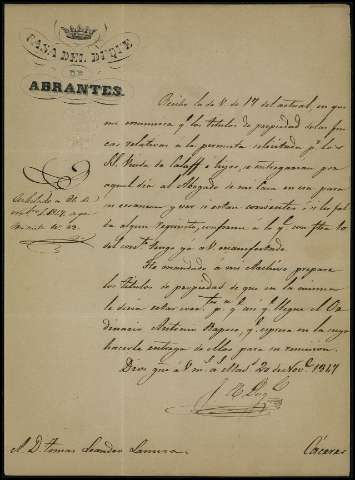 CASA DEL DUQUE
DE
ABRANTES.
Recibo la de V. de 17 del actual, en que
me comunica q.e los titulos de propiedad de las fin
cas relativas a la permuta solicitada p.r los
SS. Viuda de é hijos, se entregaron por
aquel dia al Abogado de mi Casa en esa para
su examen y ver si estan corrientes ó si les fal
ta algun requisito, conforme a lo q.e con fha
del corr.te tengo yo a V. manifestado.
He mandado á mi Archivo prepare
los titulos de propiedad de que en la misma
le decia p.a q.e asi q.e llegue el Or
dinario Antonio Raposo, q.e espero en la
hacerle entrega de ellos para su remision.
Dios gue á V. m. a. Mad. 20 de Nov.e 1847
S.r D. Tomas Leandro
Caceres